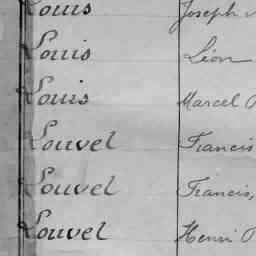 Louis Joseph
Louis Léon
Louis Marcel
Louvel Francis
Louvel Francis,
Louvel Henri